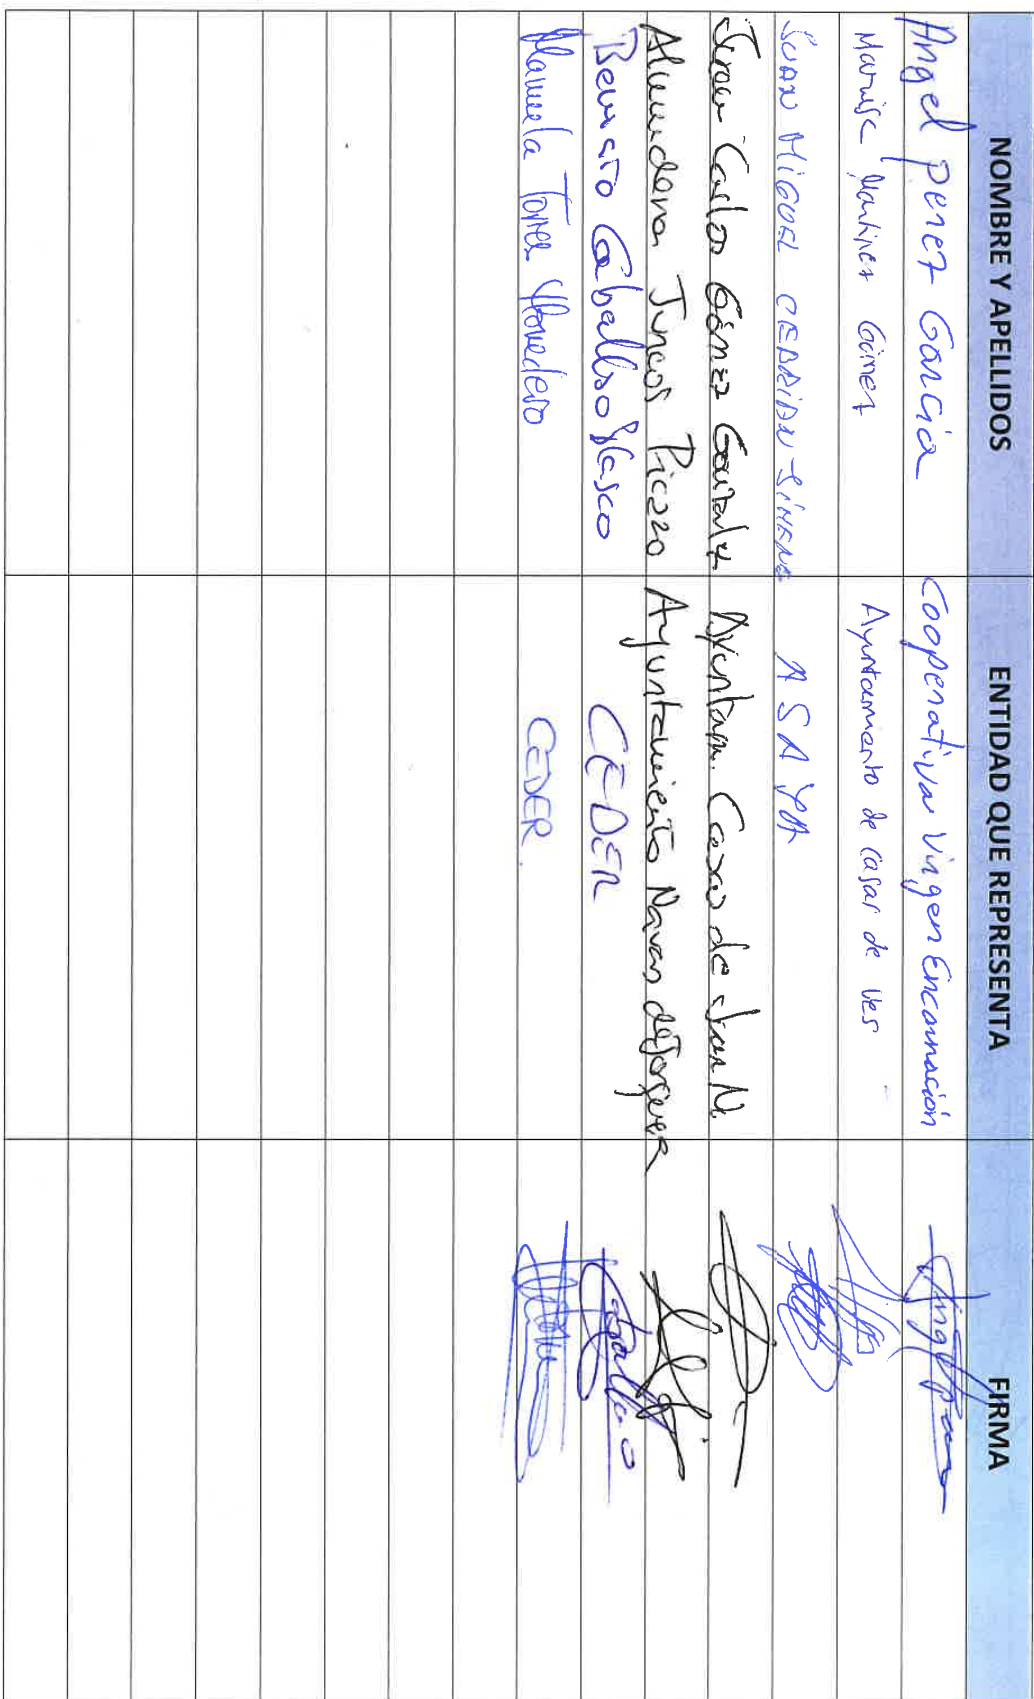 NOMBRE Y APELLIDOS ENTIDAD QUE REPRESENTA FIRMA
Angel Perez Garcia Cooperativa Virgen Encarnación
Martinez Gómez Ayuntamiento de Casas de Ves
JUAN MIGUEL CEBRIÁN ASAJA
Juan Carlos Gómez González Ayuntam. Casas de Juan N.
Almudena Juncos Picazo Ayuntamiento Navas de Jorquera
Caballero Blasco CEDER
Manuela Torres CEDER